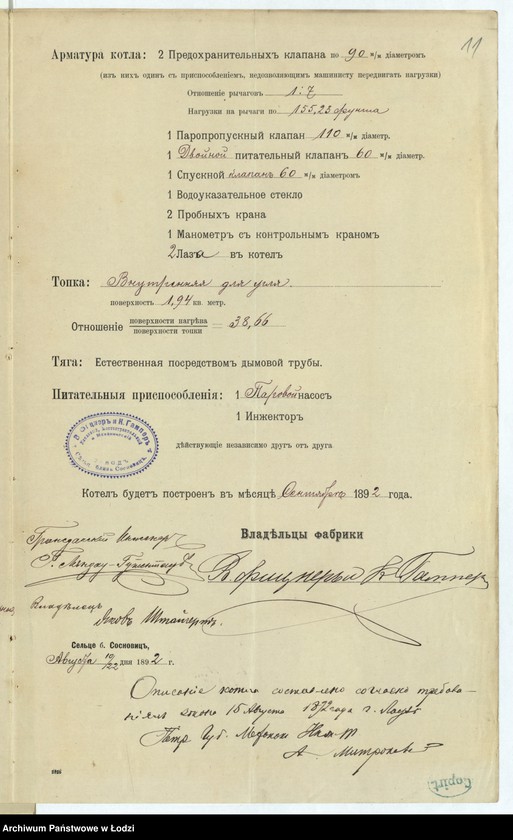 11
Арматура котла: 2 Предохранительныхъ клапана по 90 м/м діаметромъ
(изъ нихъ одинъ съ приспособленіемъ, недозволяющимъ машинисту передвигать нагрузки)
Отношеніе рычаговъ 1:7
Нагрузки на рычаги по 155,23 фунта
1 Паропропускный клапан 110 м/м діаметр.
1 Двойной питательный клапанъ 60 м/м діаметр.
1 Спускной клапанъ 60 м/м діаметромъ
1 Водоуказательное стекло
2 Пробныхъ крана
1 Манометръ съ контрольнымъ краномъ
2 Лаза въ котелъ
Топка: Внутренняя для угля
поверхность 1,94 кв. метр.
Отношеніе поверхности нагрѣва / поверхности топки = 38,66
Тяга: Естественная посредствомъ дымовой трубы.
Питательныя приспособленія: 1 Паровой насосъ
1 Инжекторъ
дѣйствующіе независимо другъ отъ друга
Котелъ будетъ построенъ въ мѣсяцѣ Сентябрѣ 1892 года.
Владѣльцы фабрики
Гражданскій Инженеръ
В. Фицнеръ и К. Гамперъ
Владѣлецъ
Яковъ Штайгертъ
Сельце б. Сосновицъ,
Августа 10/22 дня 1892 г.
Описаніе котла составлено согласно требова-
ніямъ закона 15 Августа 1872 года г. Лодзь
Петр. Губ. Механик
А. Митрохов
Copirt.
Archiwum Państwowe w Łodzi